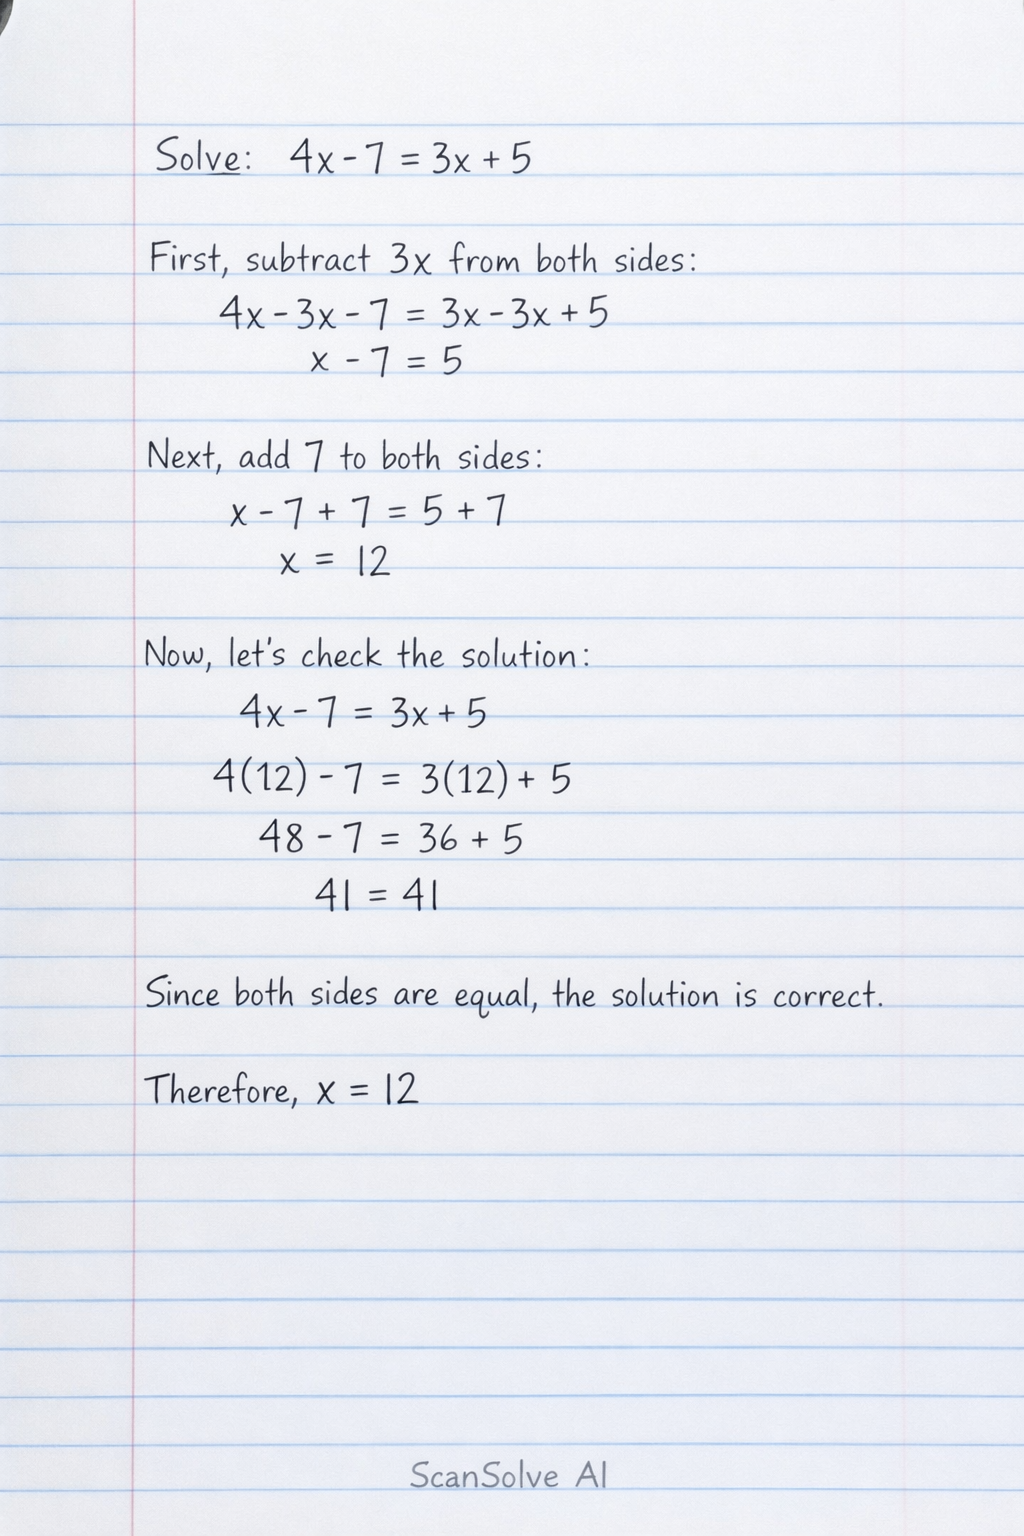 Solve: 4x - 7 = 3x + 5
First, subtract 3x from both sides:
4x - 3x - 7 = 3x - 3x + 5
x - 7 = 5
Next, add 7 to both sides:
x - 7 + 7 = 5 + 7
x = 12
Now, let's check the solution:
4x - 7 = 3x + 5
4(12) - 7 = 3(12) + 5
48 - 7 = 36 + 5
41 = 41
Since both sides are equal, the solution is correct.
Therefore, x = 12
ScanSolve AI